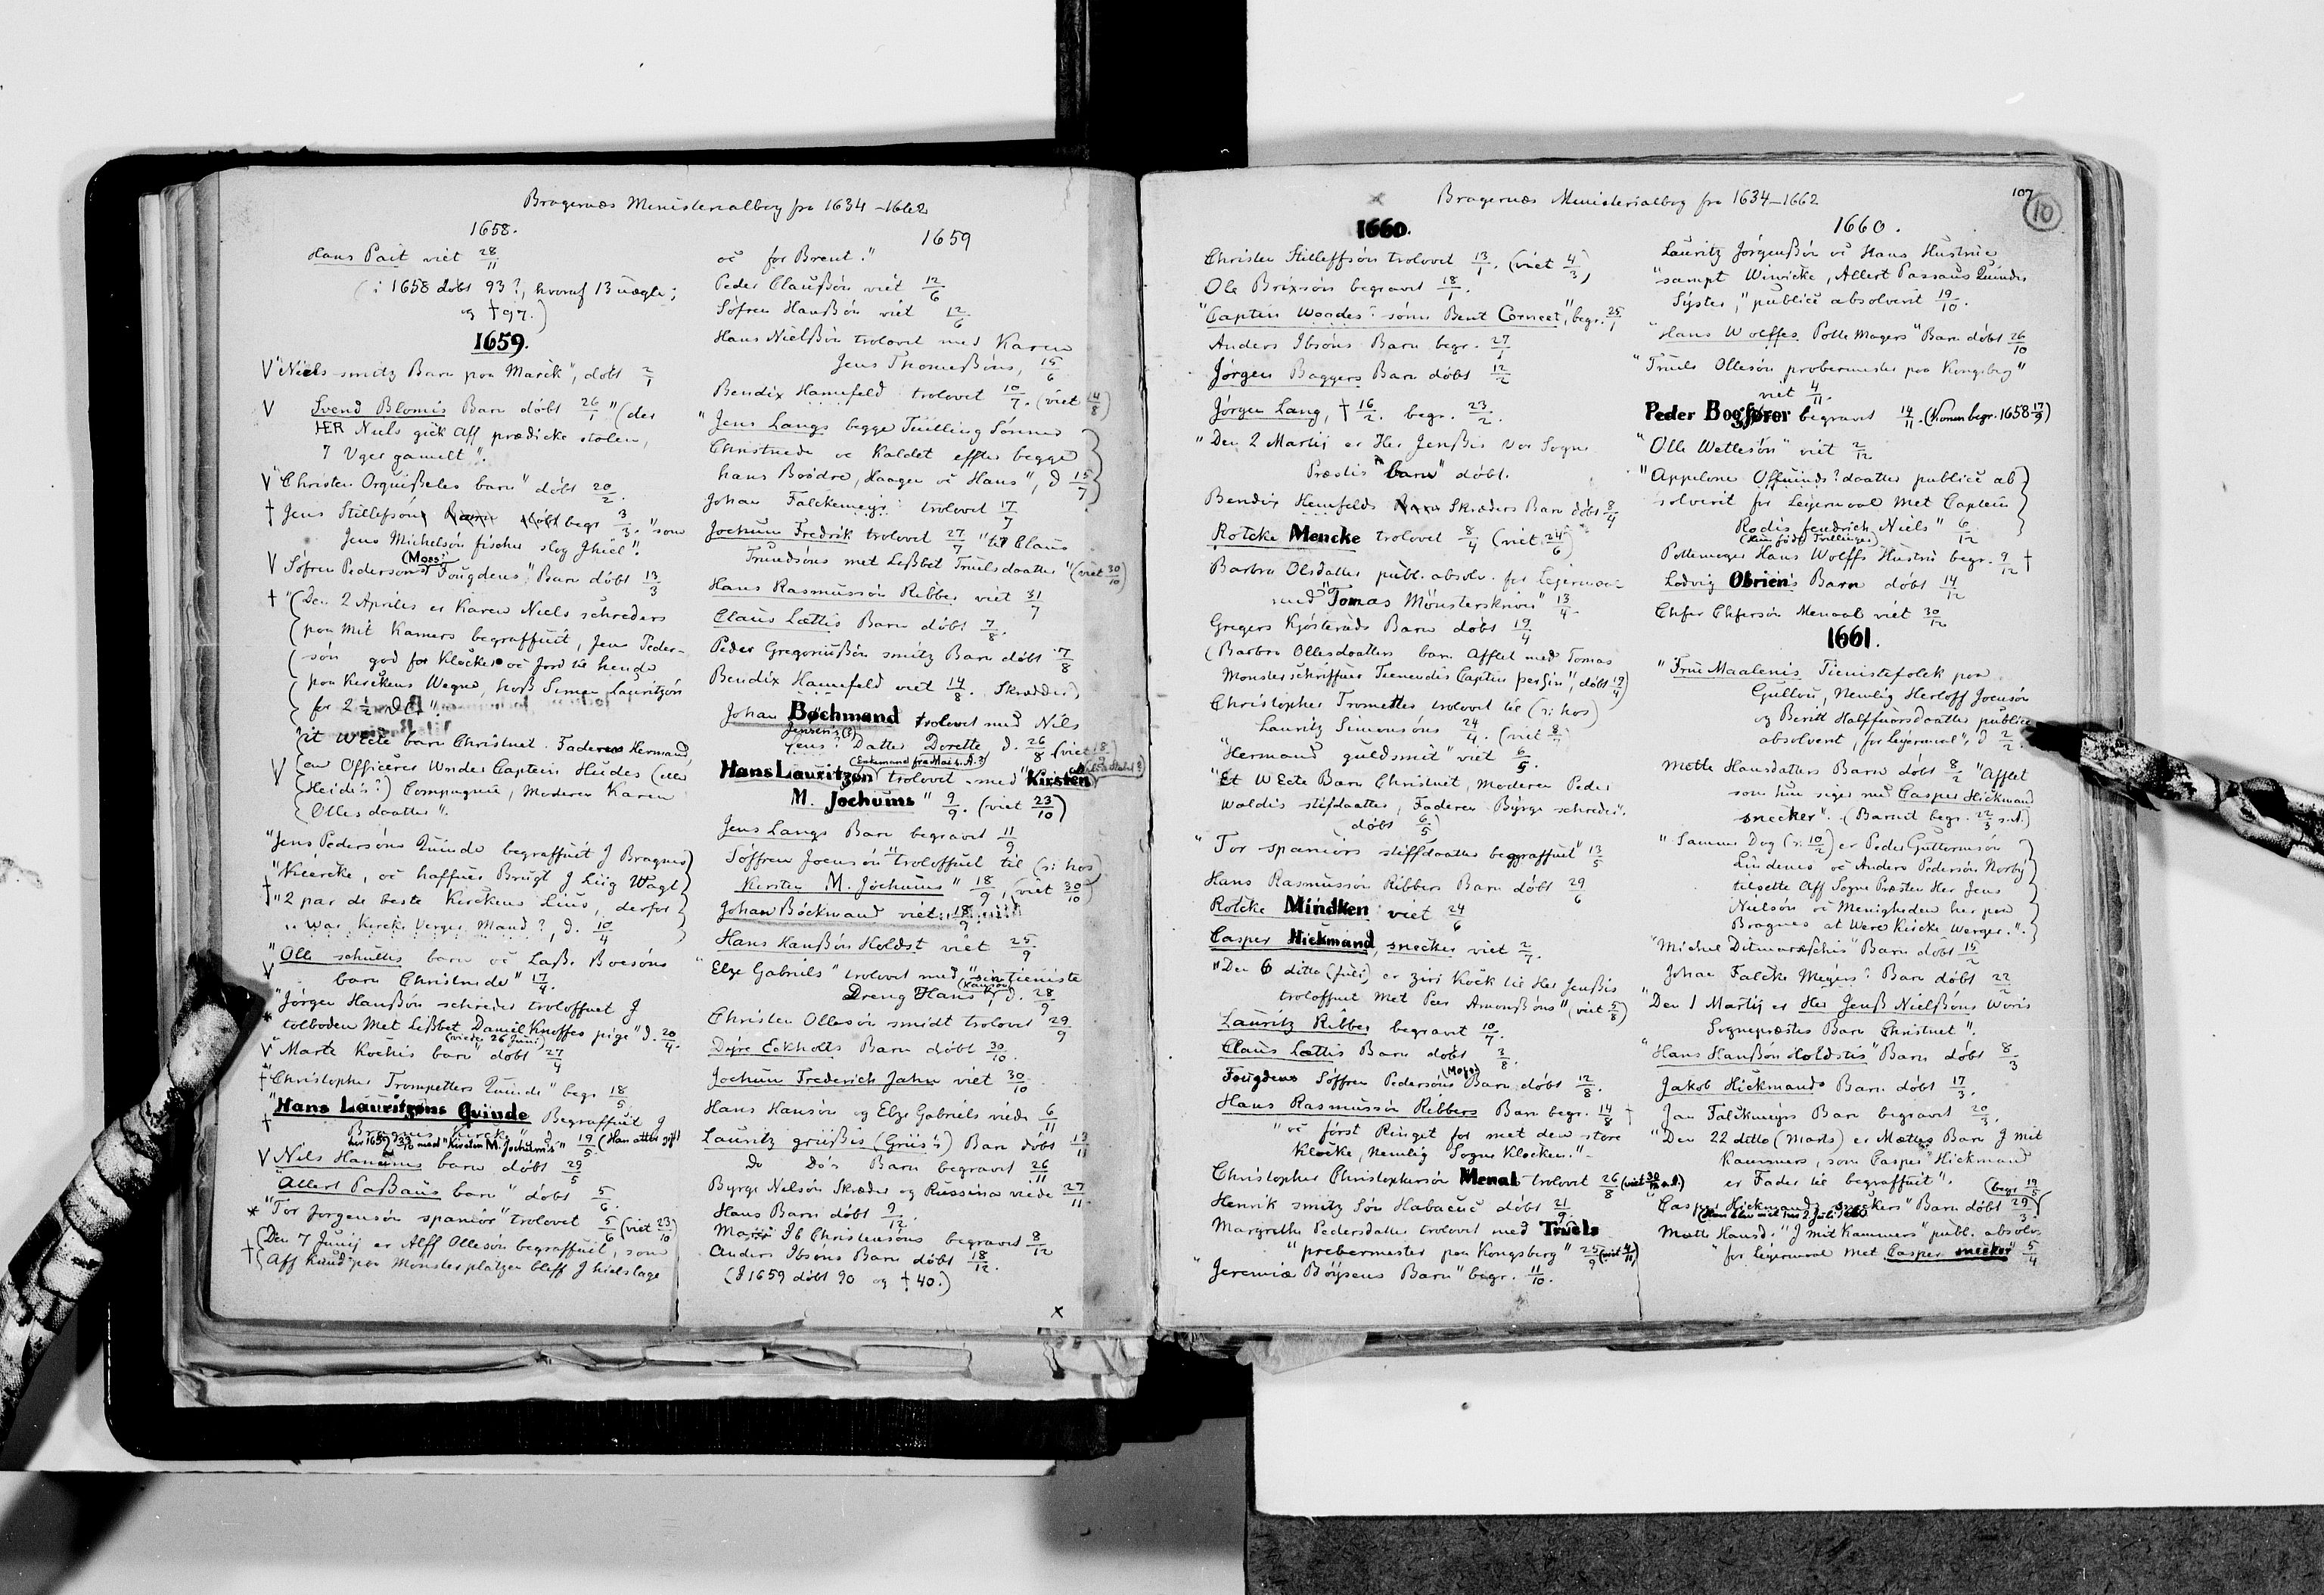 Bragernæs Ministerialbog fra 1634–1662
1658.
Hans Pait viet 28/11
(i 1658 døbt 93?, hvoraf 13 uægte;
og † 97.)
1659.
V "Niels smitz Barn paa Marck", døbt 2/1
V Svend Blomis Barn døbt 26/1 "(der
HER Niels gick aff prædicke stolen,
7 Uger gamelt".
V "Christen Orquißeles barn" døbt 20/2.
† Jens Stillefsøns begr 3/3. "som
Jens Michelsøn fischer slog Jhiel".
V Søfren Pedersøns (Moss?) Fougdens" Barn døbt 13/3
† "(Den 2 Aprilis er Karen Niels schreders
(paa mit Kamers begraffuit, Jens Peder-
(søn god for Klocker oc Jord til hende
(paa Kirckens Wegne, hoß Simen Lauritzøn
( for 2 1/2 ".
"(it WEcte barn Christnet. Faderen Hermand
V (en Officerer Under Captein Hudes (eller
(Heidis?) Compagnie, Moderen Karen
(Olles daatter".
"Jens Pedersøns Quinde begraffuit J Bragnes
"Kiercke, oc haffuer Brugt J Liig Wagt
† "2 par de beste Kirckens Lius, derfor
" War Kircke Verger Mand?, d. 10/4
"Olle schultis barn oc Laße Boesøns
V barn Christnede" 17/4.
"Jørgen Hanßøn schreder troloffuet J
* tolboden Met Lißbet Daniel Knoffes pige" d. 20/4.
(viede 26 Juni)
V "Marte Kochis barn" døbt 27/4
† "Christopher Trompetters Quinde" begr 18/5.
† "Hans Lauritzøns Quinde Begraffuit J
Bragnes Kircke" d 19/5 (Han atter gift
her 1659 23/10 med "Kirsten M. Jochum's"
V Nils Hansens barn døbt 29/5
"Allert Paßaus barn" døbt 5/6.
* "Tor Jørgensøn spaniør" trolovet 5/6 (viet 23/10)
(Den 7 Junij er Alff Ollesøn begraffuit, som
† (Aff hand paa Mønsterplatzen bleff J hielslage
1659
oc for Brent."
Peder Claußøn viet 12/6
Søfren Hanßøn viet 12/6
Hans Nielßøn trolovet med Karen
Jens Thomeßøns, 15/6
Bendix Hanefeld trolovet 10/7. (viet 14/8)
"Jens Langs begge Tuilling Sønner
Christnede oc Kaldet effter begge
hans Boødre, Haagen oc Hans", d 15/7
Johan Falckemeyr trolovet 17/7
Jochum Fredrik trolovet 27/7 "til Claus
Trundsøns met Leßbet Truelsdaatter" (viet 30/10)
Hans Rasmussøn Ribber viet 31/7
Claus Lættis Barn døbt 7/8.
Peder Gregoriußøn smitz Barn døbt 7/8
Bendix Hannefeld viet 14/8. Skrædder
Johan Bøchmand trolovet med Nils
Jensens (?)
Jens? Datter Dorette, d. 26/8 (viet 18/9)
(Enkemand fra Mai h. A.?)
Hans Lauritzøn trolovet med "Kirsten
M. Jochums" 9/9. (viet 23/10)
Jens Langs Barn begravet 11/9
Søffren Joensøn "troloffuet til (ɔ: hos)
Kirsten M. Jochums" 18/9, (viet 30/10)
Johan Bøckmand viet 18/9
Hans Hanßøn Holdst viet 25/9
"Elze Gabriels" trolovet med "sin tieniste
Dreng Hans" d. 28/9
(Hansøn)
Christen Ollesøn smidt trolovet 29/9
Døfre Eckholts Barn døbt 30/10.
Jochum Frederich Jahn viet 30/10
Hans Hansøn og Elze Gabriels viede 6/11
Lauritz grüßis (Grüs's) Barn døbt 13/11
Do Do's Barn begravet 26/11
Byrge Nelsøn Skræder og Russina viede 27/11
Hans Barn døbt 9/12.
Ib Christensøns begravet 8/12
Anders Ibsøns Barn døbt 18/12.
(I 1659 døbt 90 og † 40.)
x
x
Bragernæs Ministerialbog fra 1634–1662
107
10
1660.
Christen Stilleffsøn trolovet 13/1. (viet 4/3)
Ole Brixsøn begravet 18/1.
"Captein Woades? sønn Bent Corneet", begr. 25/1
Anders Ibsøns Barn begr. 27/1
Jørgen Baggers Barn døbt 12/2
Jørgen Lang, † 16/2. begr. 23/2.
"Den 2 Martij er Her Jenßis Vor Sogne
Præstis "barn" døbt.
Bendix Henefelds Skræders Barn døbt 8/4
Rotcke Mencke trolovet 8/4 (viet 24/6)
Barbra Olsdatter publ. absolv. for Lejermaal
med "Tomas Mønsterskriver" 13/4.
Gregers Kjøsteruds Barn døbt 19/4
(Barbra Ollesdaatters barn Afflet med Tomas
Monsterschriffuer Tienendis Captein persin", døbt 19/4)
Christopher Tromettes trolovet til (ɔ: hos)
Lauritz Simensøns 24/4. (viet 8/7)
"Hermand guldsmit" viet 6/5.
"Et WEcte Barn Christnet, Moderen Peder
Woldis stifdaatter, Faderen Byrge schreder".
døbt 6/5)
"Tor spaniørs stiffdaatter begraffuet" 13/5
Hans Rasmussøn Ribbers Barn døbt 29/6
Rotcke Mindken viet 24/6
Casper Hickmand, snecker viet 2/7.
"Den 6 ditto (juli) er ziri Kock til Her Jenßis
troloffuet Met Peer Amonßøns", (viet 5/8)
Lauritz Ribber begravet 10/7.
Claus Lættis Barn døbt 3/8.
Fougdens Søffren Pedersøns (Moss) Barn døbt 12/8.
Hans Rasmussøn Ribbers Barn begr. 14/8 †
"oc først Ringet for met den store
Klocke, Nemlig Sogne Klocken."
Christopher Christophersøn Menal trolovet 26/8 (viet 30/12 s.d.)
Henrik smitz Søn Habacuc døbt 21/9.
Margrethe Pedersdatter trolovet med Truels
"probermester paa Kongsberg" 25/9 (viet 4/11)
"Jeremiæ Böysens Barn" begr. 11/10.
1660.
Lauritz Jørgenßøn oc Hans Hustrue
"sampt Winnicke, Allert Passaus Quindes
Syster," publice absolverit 19/10.
"Hans Wolffes Potte Magers" Barn døbt 26/10
"Truels Ollesøn probermester paa Kongsberg"
viet 4/11.
Peder Bogfører begravet 14/11. (Konen begr. 1658 17/9)
"Olle Wetlesøn" viet 2/12
"Appelone Offuinds? daatter publice ab
solverit for Lejermaal met Captein
Rodis fendrich Niels" 6/12
(hun fødte Tvillinger)
Pottemager Hans Wolffs Hustru begr. 9/12 †
Lodvig Obriens Barn døbt 14/12
Chfer Chfersøn Menaal viet 30/12
1661.
"Frue Maalenis Tienistefolck paa
Gullou, Nemlig Herloff Joensøn
og Beritt Halffuorsdaatter publice
absolvert, for Lejermaal", d 2/2.
Mette Hansdatters Barn døbt 8/2 "Afflet
som hun siger med Casper Hickmand
snecker". (Barnet begr. 22/3 s.d.)
"Samme Dag (ɔ: 10/2) er Peder Guttormsøn
Lindenes oc Anders Pedersøn Norby
tilsette Aff Sogne Præsten Her Jens
Nielsøn oc Menigheden her paa
Bragnes at Were Kircke Werger."
"Michel Ditmarschis" Barn døbt 15/2
Johan Falcke Meyers? Barn døbt 22/2
"Den 1 Martij er Her Jenß Nielßøns Woris
Sognepræstes Barn Christnet".
"Hans Hanßøn Holdstis" Barn døbt 8/3
Jakob Hickmands Barn døbt 17/3.
Jan Falckmeyrs Barn begravet 20/3.
"Den 22 ditto (Marts) er Mættes Barn J mit
Kammers, som Casper Hickmand
er Fader til begraffuet".
(begr 19/5
Casper Hickmands sneckers" Barn døbt 29/3.)
(Han blev viet her 2 Juli 1660)
Mette Hansd. "J mit Kammers" publ. absolv.
"for Lejermaal met Casper snecker" 5/4